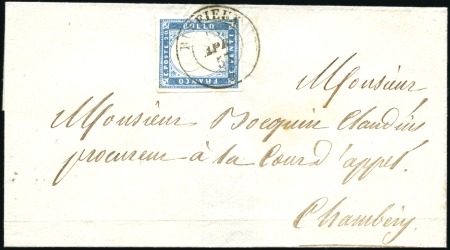 C. POSTE 20
BOLLO
FRANCO
APR
Monsieur
Monsieur Bocquin Claudius
procureur à la Cour d'appel.
Chambéry